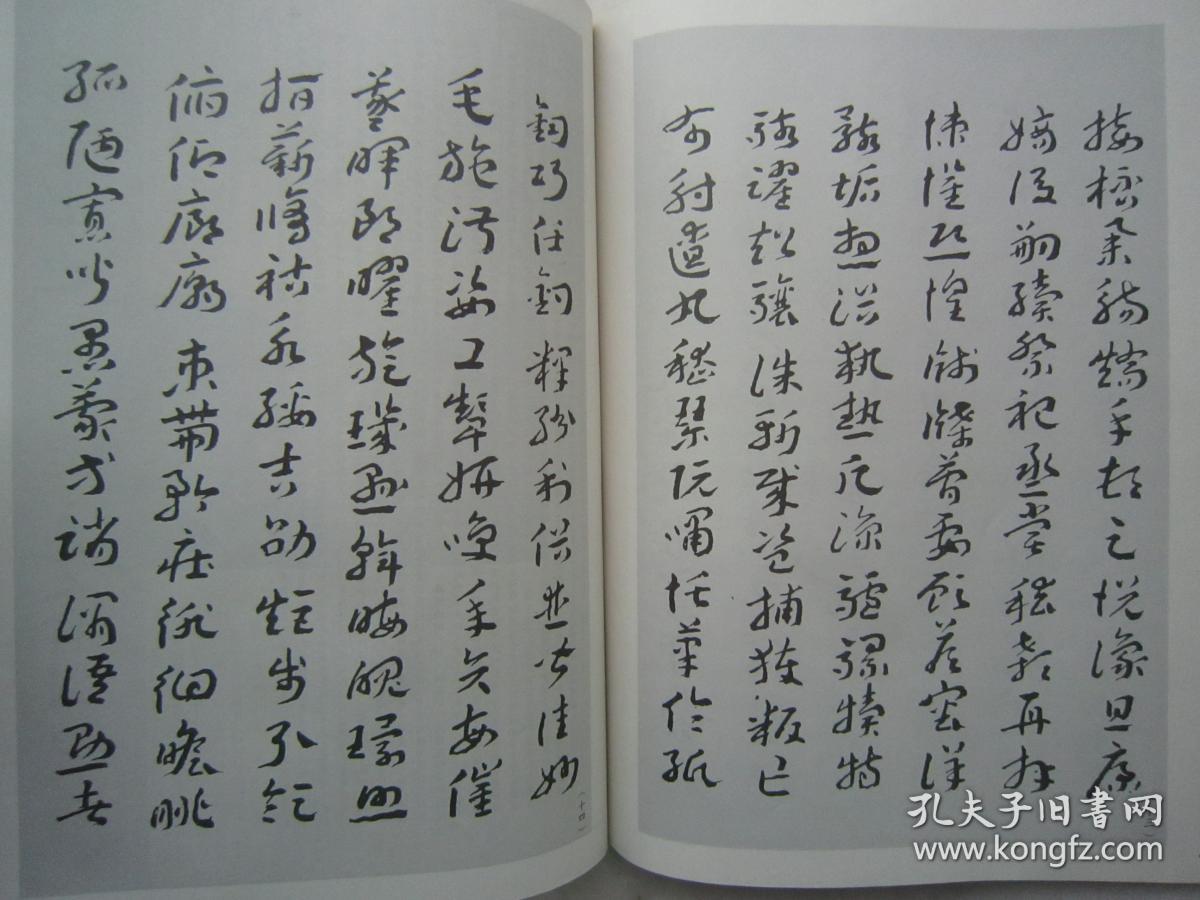 接杯舉觴矯手頓足悅豫且康
嫡後嗣續祭祀蒸嘗稽顙再拜
悚懼恐惶牋牒簡要顧答審詳
骸垢想浴執熱願涼驢騾犢特
駭躍超驤誅斬賊盜捕獲叛亡
布射遼丸嵇琴阮嘯恬筆倫紙
鈞巧任釣釋紛利俗並皆佳妙
毛施淑姿工顰妍咲年矢每催
羲暉朗曜旋璣懸斡晦魄環照
指薪修祜永綏吉劭矩步引領
俯仰廊廟束帶矜莊徘徊瞻眺
孤陋寡聞愚蒙等誚謂語助者
（十四）
孔夫子旧书网
www.kongfz.com